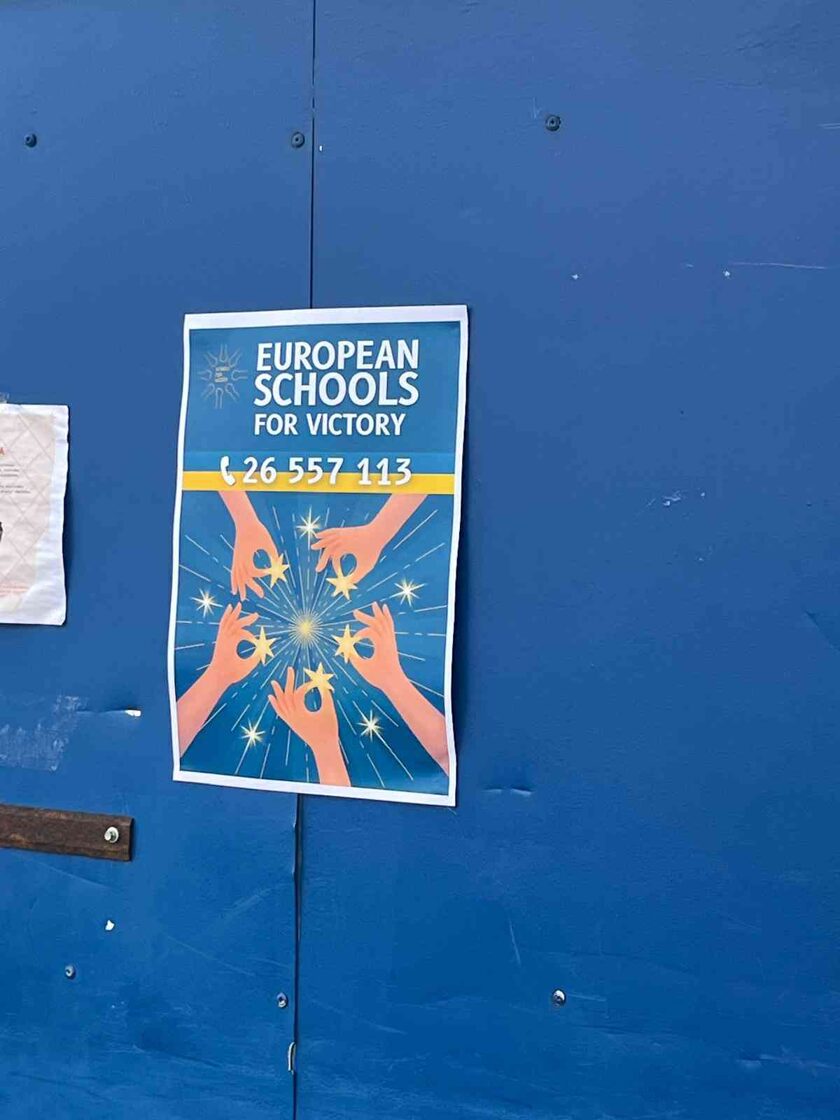 EUROPEAN
SCHOOLS
FOR VICTORY
26 557 113